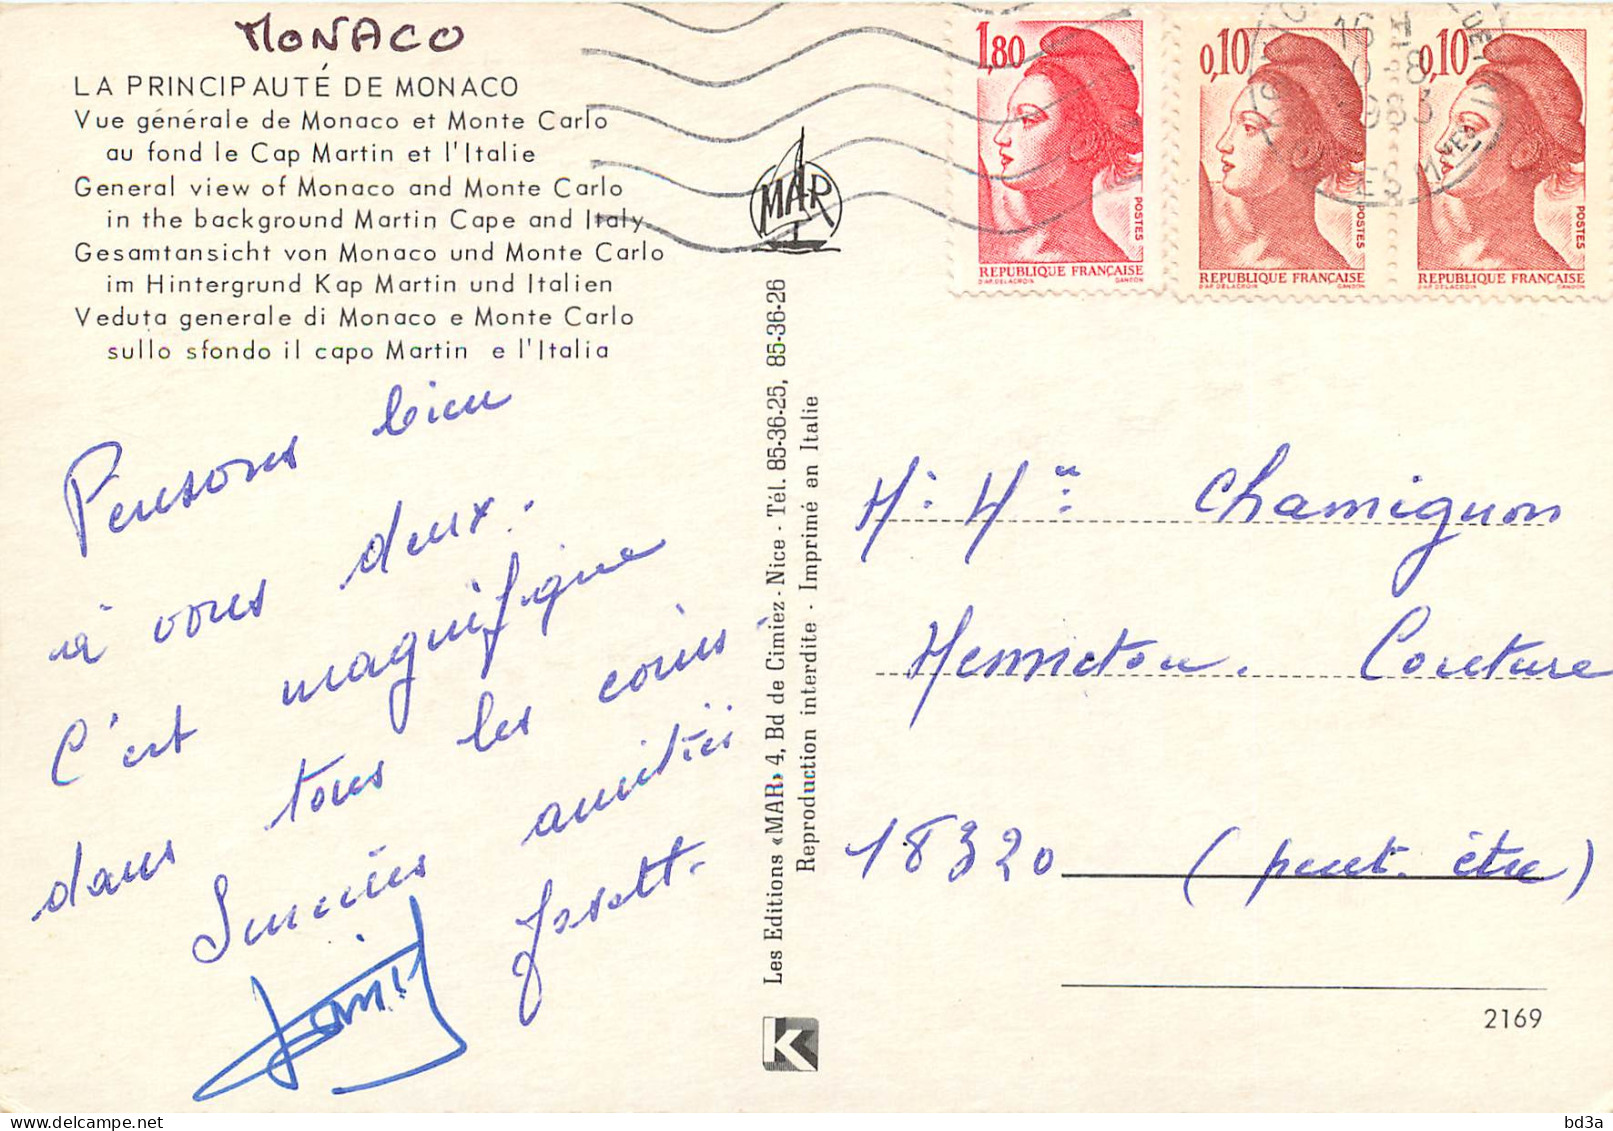 MONACO
LA PRINCIPAUTÉ DE MONACO
Vue générale de Monaco et Monte Carlo
au fond le Cap Martin et l'Italie
General view of Monaco and Monte Carlo
in the background Martin Cape and Italy
Gesamtansicht von Monaco und Monte Carlo
im Hintergrund Kap Martin und Italien
Veduta generale di Monaco e Monte Carlo
sullo sfondo il capo Martin e l'Italia
Pensons bien
à vous deux.
C'est magnifique
dans tous les coins.
amitiés
Les Editions «MAR» 4, Bd de Cimiez - Nice - Tél. 85-36-25, 85-36-26
Reproduction interdite - Imprimé en Italie
MAR
K
1,80
POSTES
REPUBLIQUE FRANÇAISE
D'AP. DELACROIX GANDON
0,10
POSTES
REPUBLIQUE FRANÇAISE
D'AP. DELACROIX GANDON
0,10
POSTES
REPUBLIQUE FRANÇAISE
D'AP. DELACROIX GANDON
16 H
Chamignon
Menneton. Couture
18320 (peut-être)
2169
bd3a